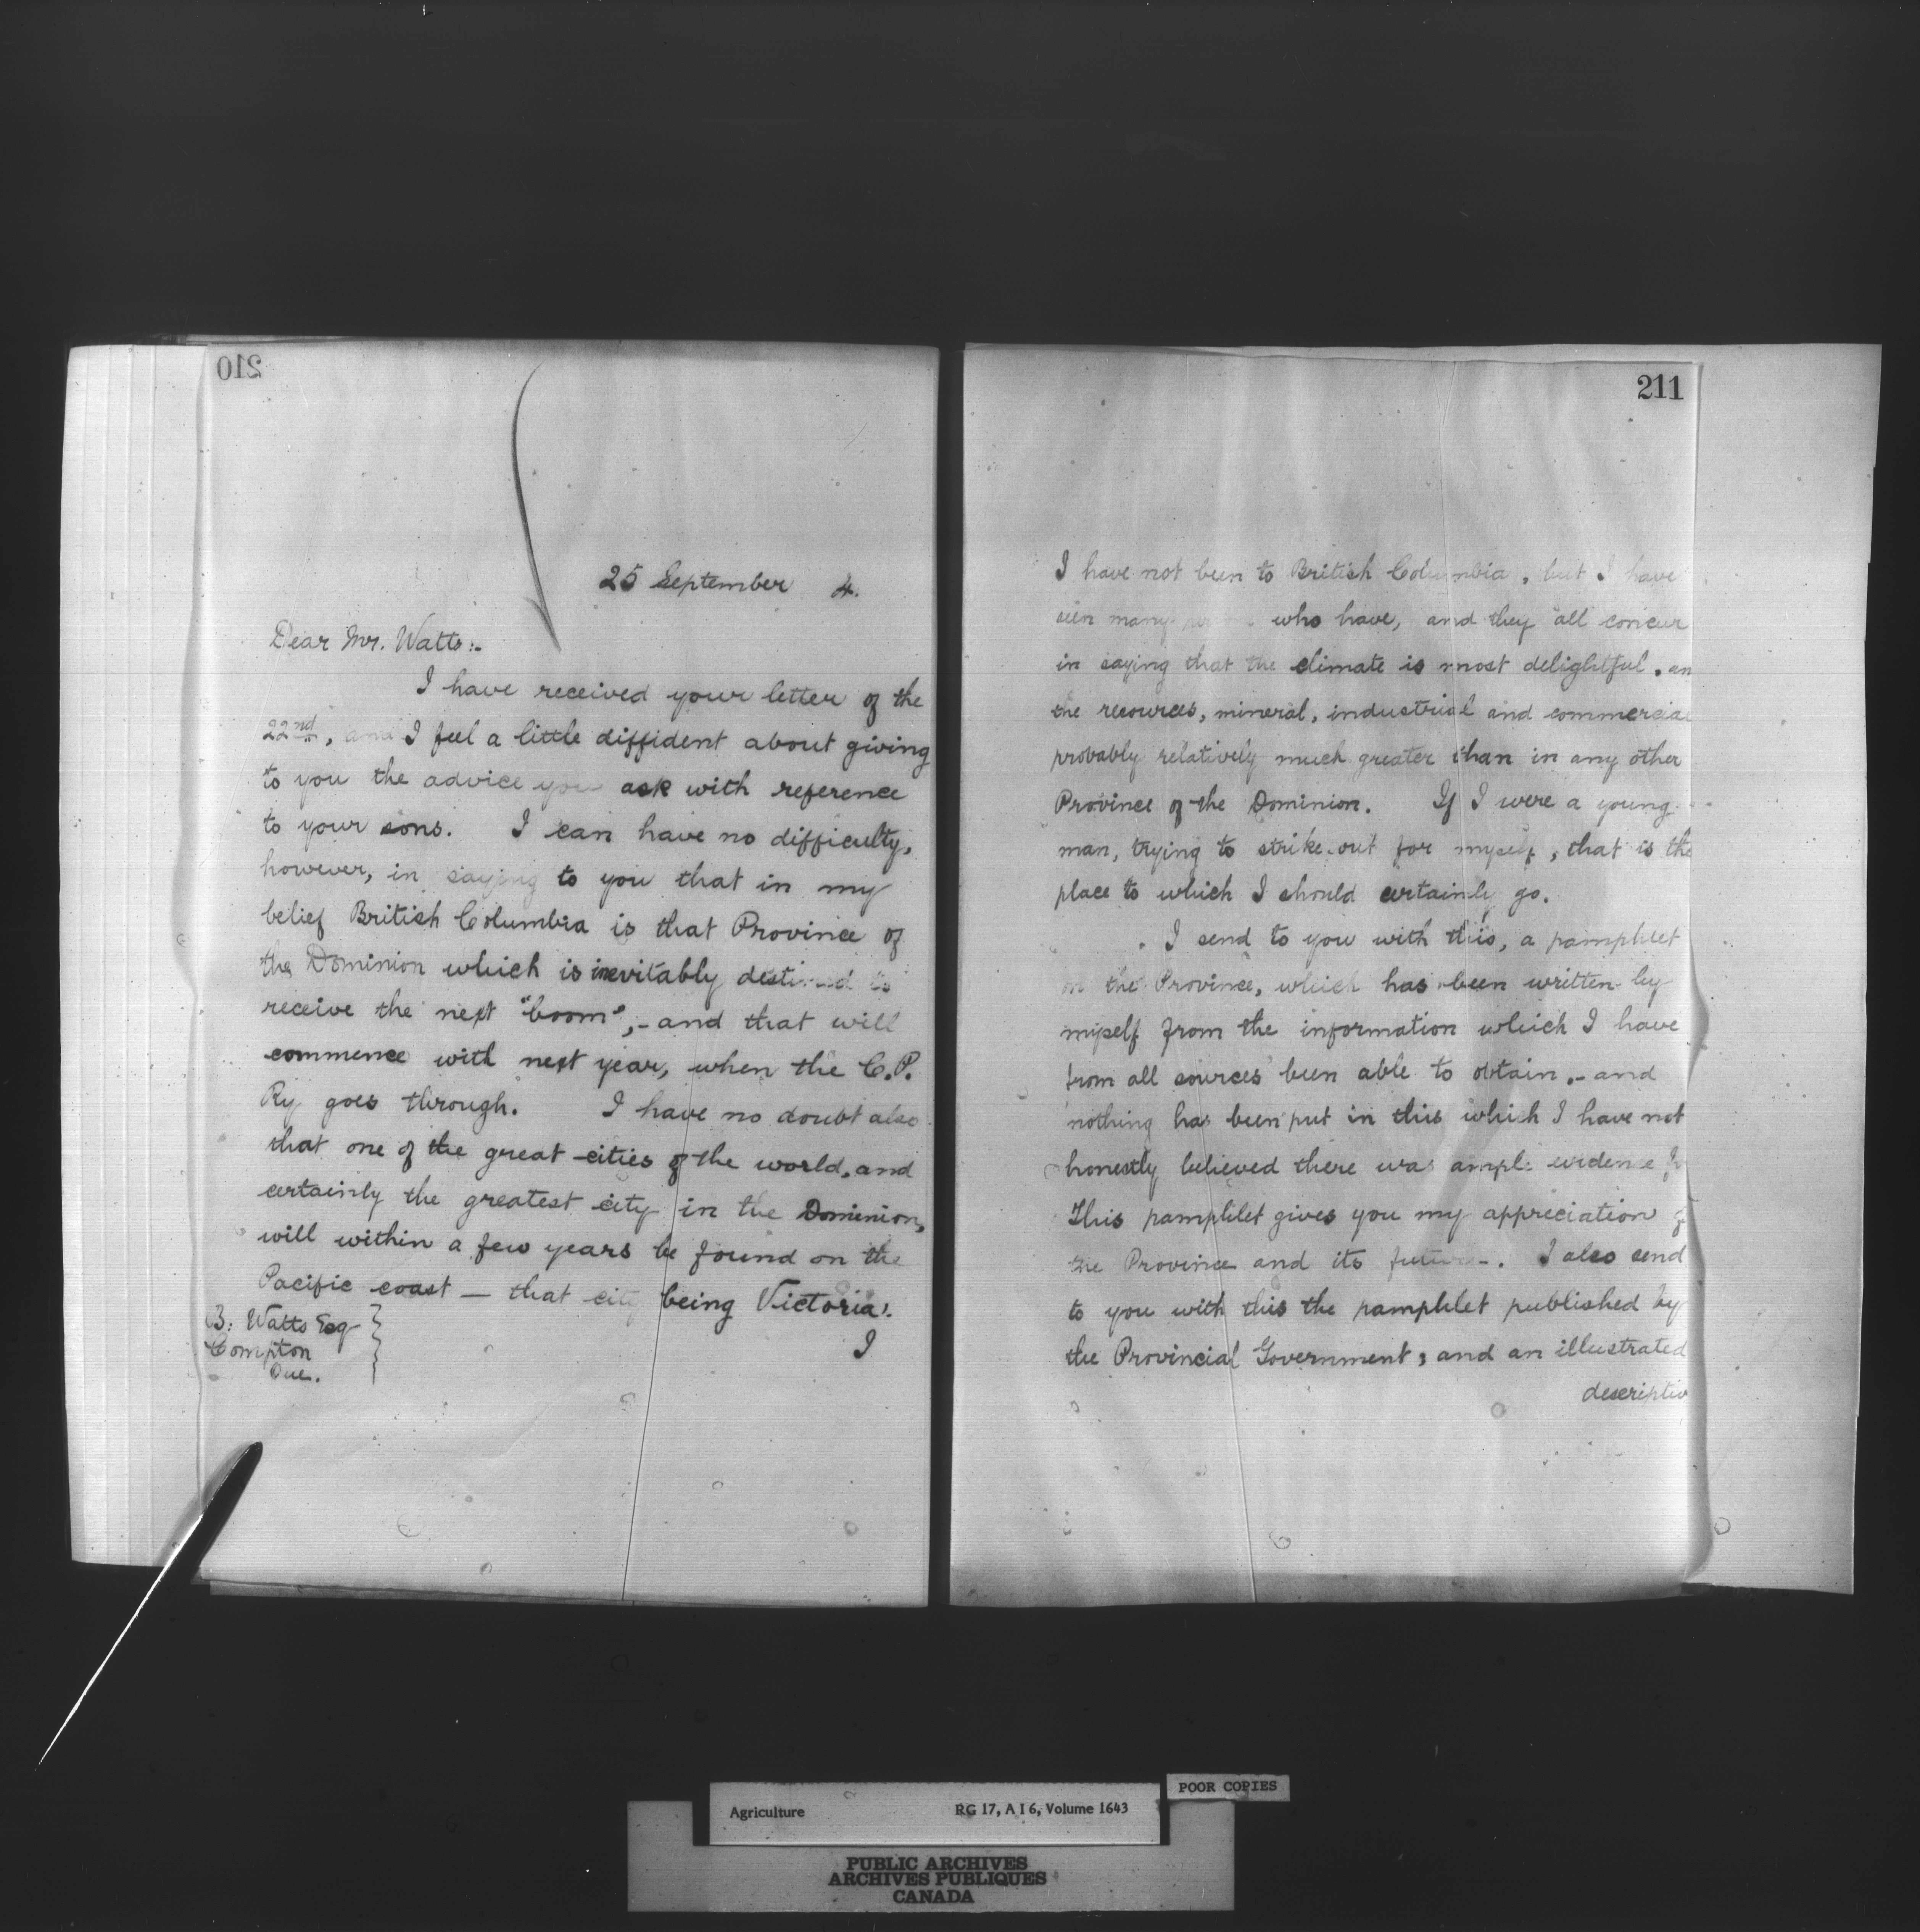 210
25 September 4.
Dear Mr. Watts:-
I have received your letter of the
22nd, and I feel a little diffident about giving
to you the advice you ask with reference
to your sons. I can have no difficulty,
however, in saying to you that in my
belief British Columbia is that Province of
the Dominion which is inevitably destined to
receive the next "boom",- and that will
commence with next year, when the C.P.
Ry goes through. I have no doubt also
that one of the great cities of the world, and
certainly the greatest city in the Dominion,
will within a few years be found on the
Pacific coast — that city being Victoria!
B. Watts Esq
Compton
Que.
I
211
I have not been to British Columbia, but I have
seen many who have, and they all concur
in saying that the climate is most delightful, an
the recources, mineral, industrial and commercial
probably relatively much greater than in any other
Province of the Dominion. If I were a young
man, trying to strike out for myself, that is the
place to which I should certainly go.
I send to you with this, a pamphlet
on the Province, which has been written by
myself from the information which I have
from all sources been able to obtain,- and
nothing has been put in this which I have not
honestly believed there was ample evidence
This pamphlet gives you my appreciation of
the Province and its future. I also send
to you with this the pamphlet published by
the Provincial Government, and an illustrated
descriptiv
POOR COPIES
Agriculture RG 17, A I 6, Volume 1643
PUBLIC ARCHIVES
ARCHIVES PUBLIQUES
CANADA